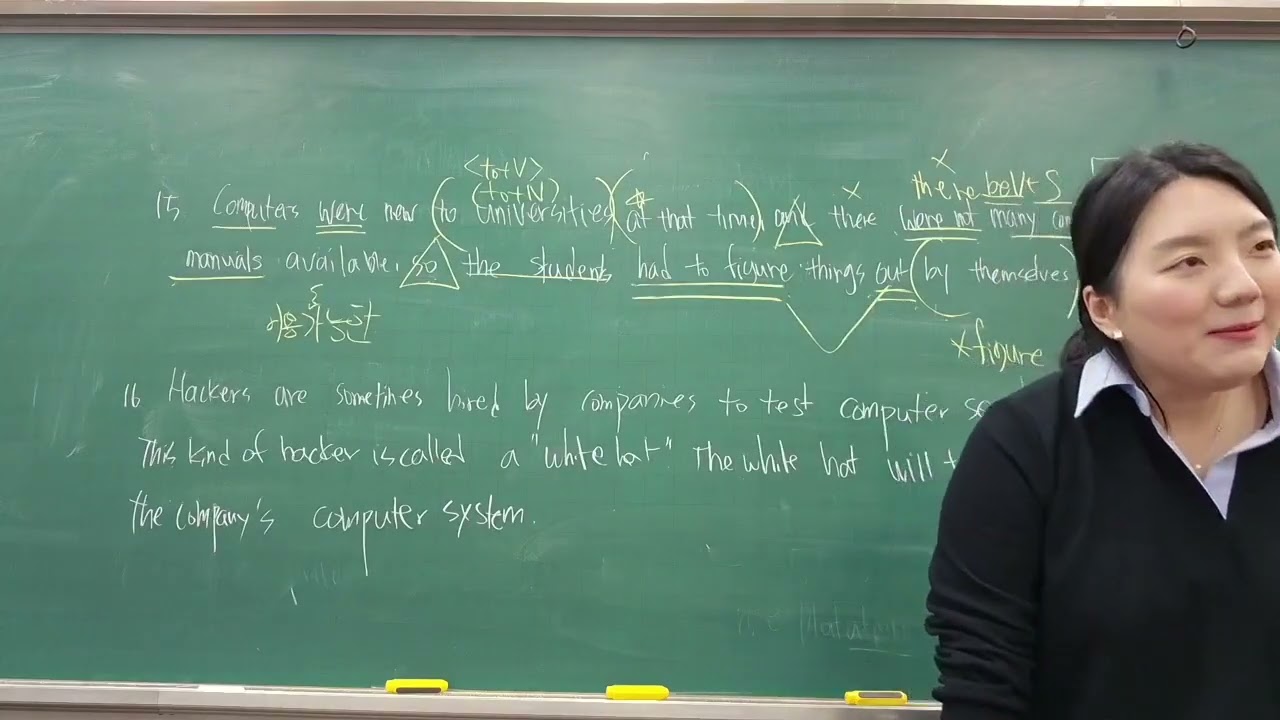 <to+V>
(to+N)
there be V+S
15 Computers were new to universities at that time, and there were not many
manuals available, so the students had to figure things out by themselves
*figure
16 Hackers are sometimes hired by companies to test computer
This kind of hacker is called a "white hat." The white hat will
the company's computer system.